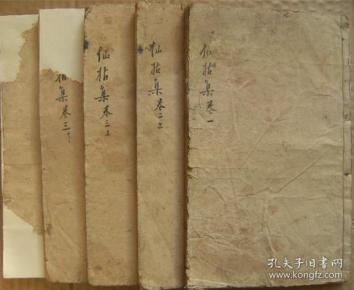 仙拈集卷一
仙拈集卷二上
仙拈集卷三上
拈集卷三下
孔夫子旧书网